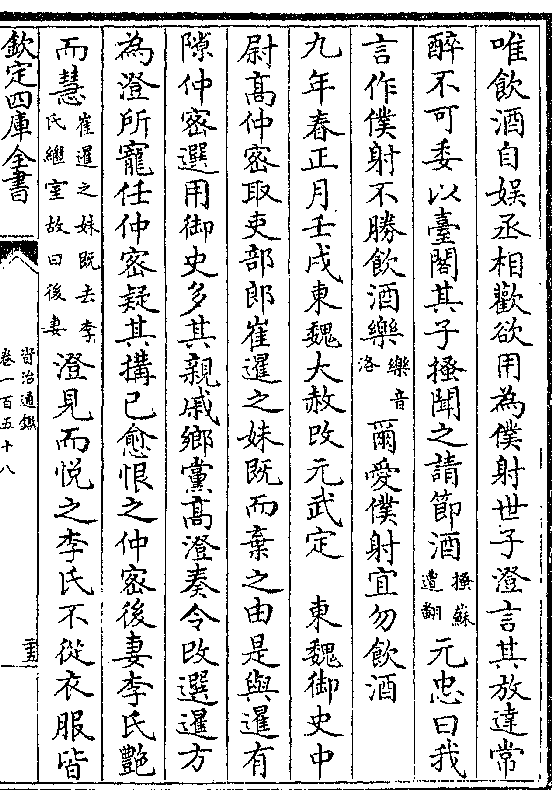 唯飲酒自娛丞相歡欲用為僕射世子澄言其放達常
醉不可委以臺閣其子搔聞之請節酒搔蘇遭翻元忠曰我
言作僕射不勝飲酒樂樂音洛爾愛僕射宜勿飲酒
九年春正月壬戌東魏大赦改元武定 東魏御史中
尉高仲密取吏部郎崔暹之妹既而棄之由是與暹有
隙仲密選用御史多其親戚鄉黨高澄奏令改選暹方
為澄所寵任仲密疑其搆己愈恨之仲密後妻李氏艷
而慧崔暹之妹既去李氏繼室故曰後妻澄見而悅之李氏不從衣服皆
欽定四庫全書
資治通鑑
卷一百五十八